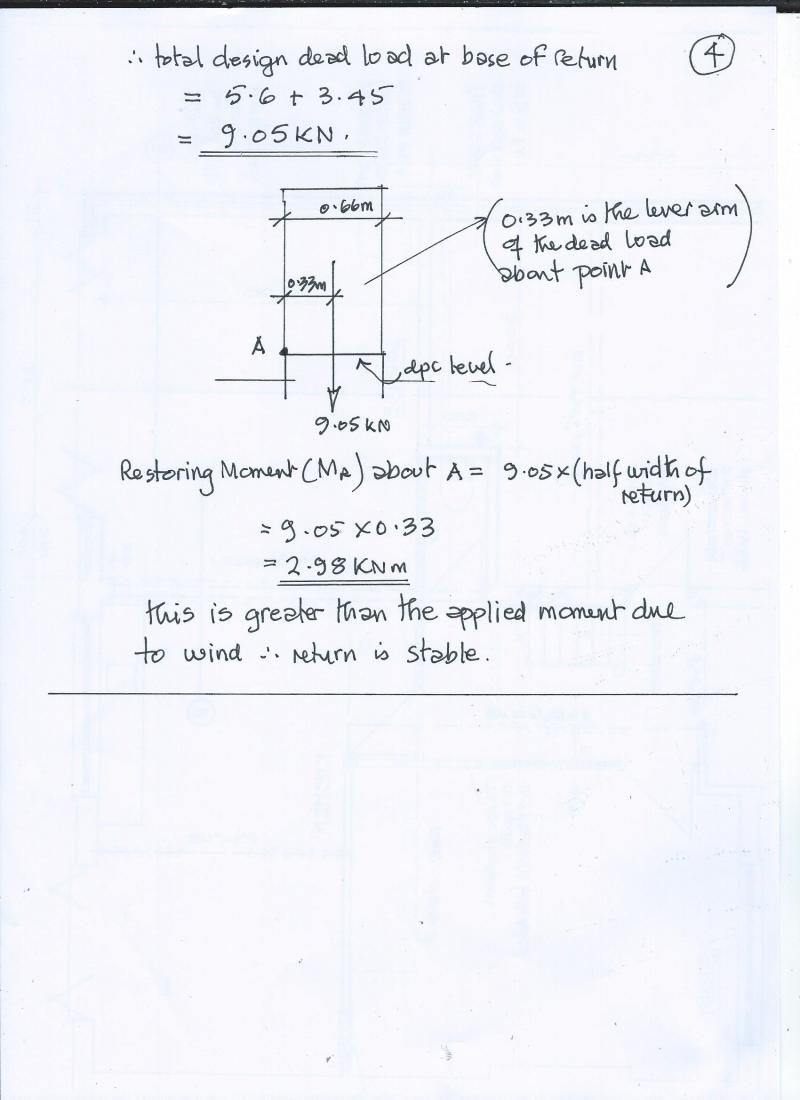 ∴ total design dead load at base of return
4
= 5.6 + 3.45
= 9.05KN.
0.66m
0.33m is the lever arm
of the dead load
about point A
0.33m
A
dpc level -
9.05KN
Restoring Moment (MR) about A = 9.05 x (half width of
return)
= 9.05 x 0.33
= 2.98 KNm
this is greater than the applied moment due
to wind ∴ return is stable.